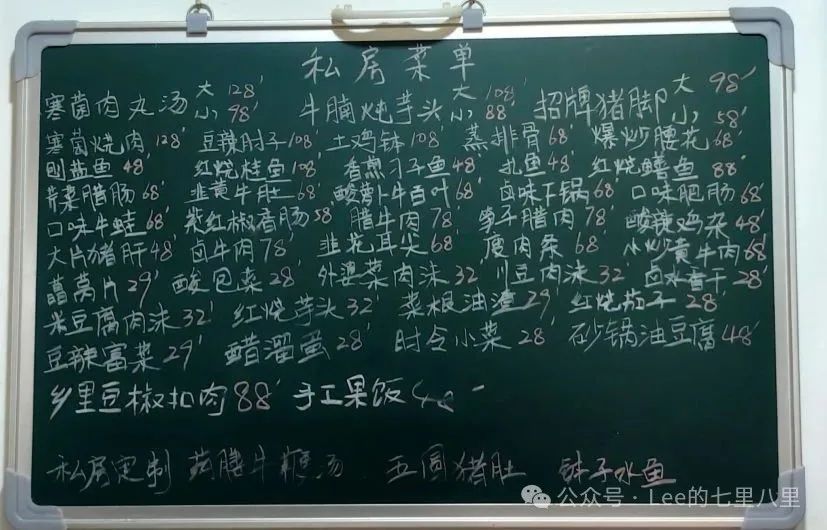 私房菜单
寒菌肉丸汤 大128' 小98' 牛腩炖芋头 大108' 小88' 招牌猪脚 大98' 小58'
寒菌烧肉128' 豆辣肘子108' 土鸡钵108' 蒸排骨68' 爆炒腰花68'
刨盐鱼48' 红烧桂鱼108' 香煎刁子鱼48' 扎鱼48' 红烧鳝鱼88'
芹菜腊肠68' 韭黄牛肚68' 酸萝卜牛百叶68' 卤味下锅68' 口味肥肠68'
口味牛蛙68' 紫红椒香肠58' 腊牛肉78' 笋子腊肉78' 酸辣鸡杂48'
大片猪肝48' 卤牛肉78' 韭花耳尖68' 瘦肉条68' 小炒黄牛肉68'
莴片29' 酸包菜28' 外婆菜肉沫32 川豆肉沫32 卤水香干28'
米豆腐肉沫32' 红烧芋头32' 菜根油渣29' 红烧茄子28'
豆辣富菜29' 醋溜蛋28' 时令小菜28' 砂锅油豆腐48'
乡里豆椒扣肉88' 手工果饭48
私房定制 牛鞭汤 五圆猪肚 钵子水鱼
公众号·Lee的七里八里